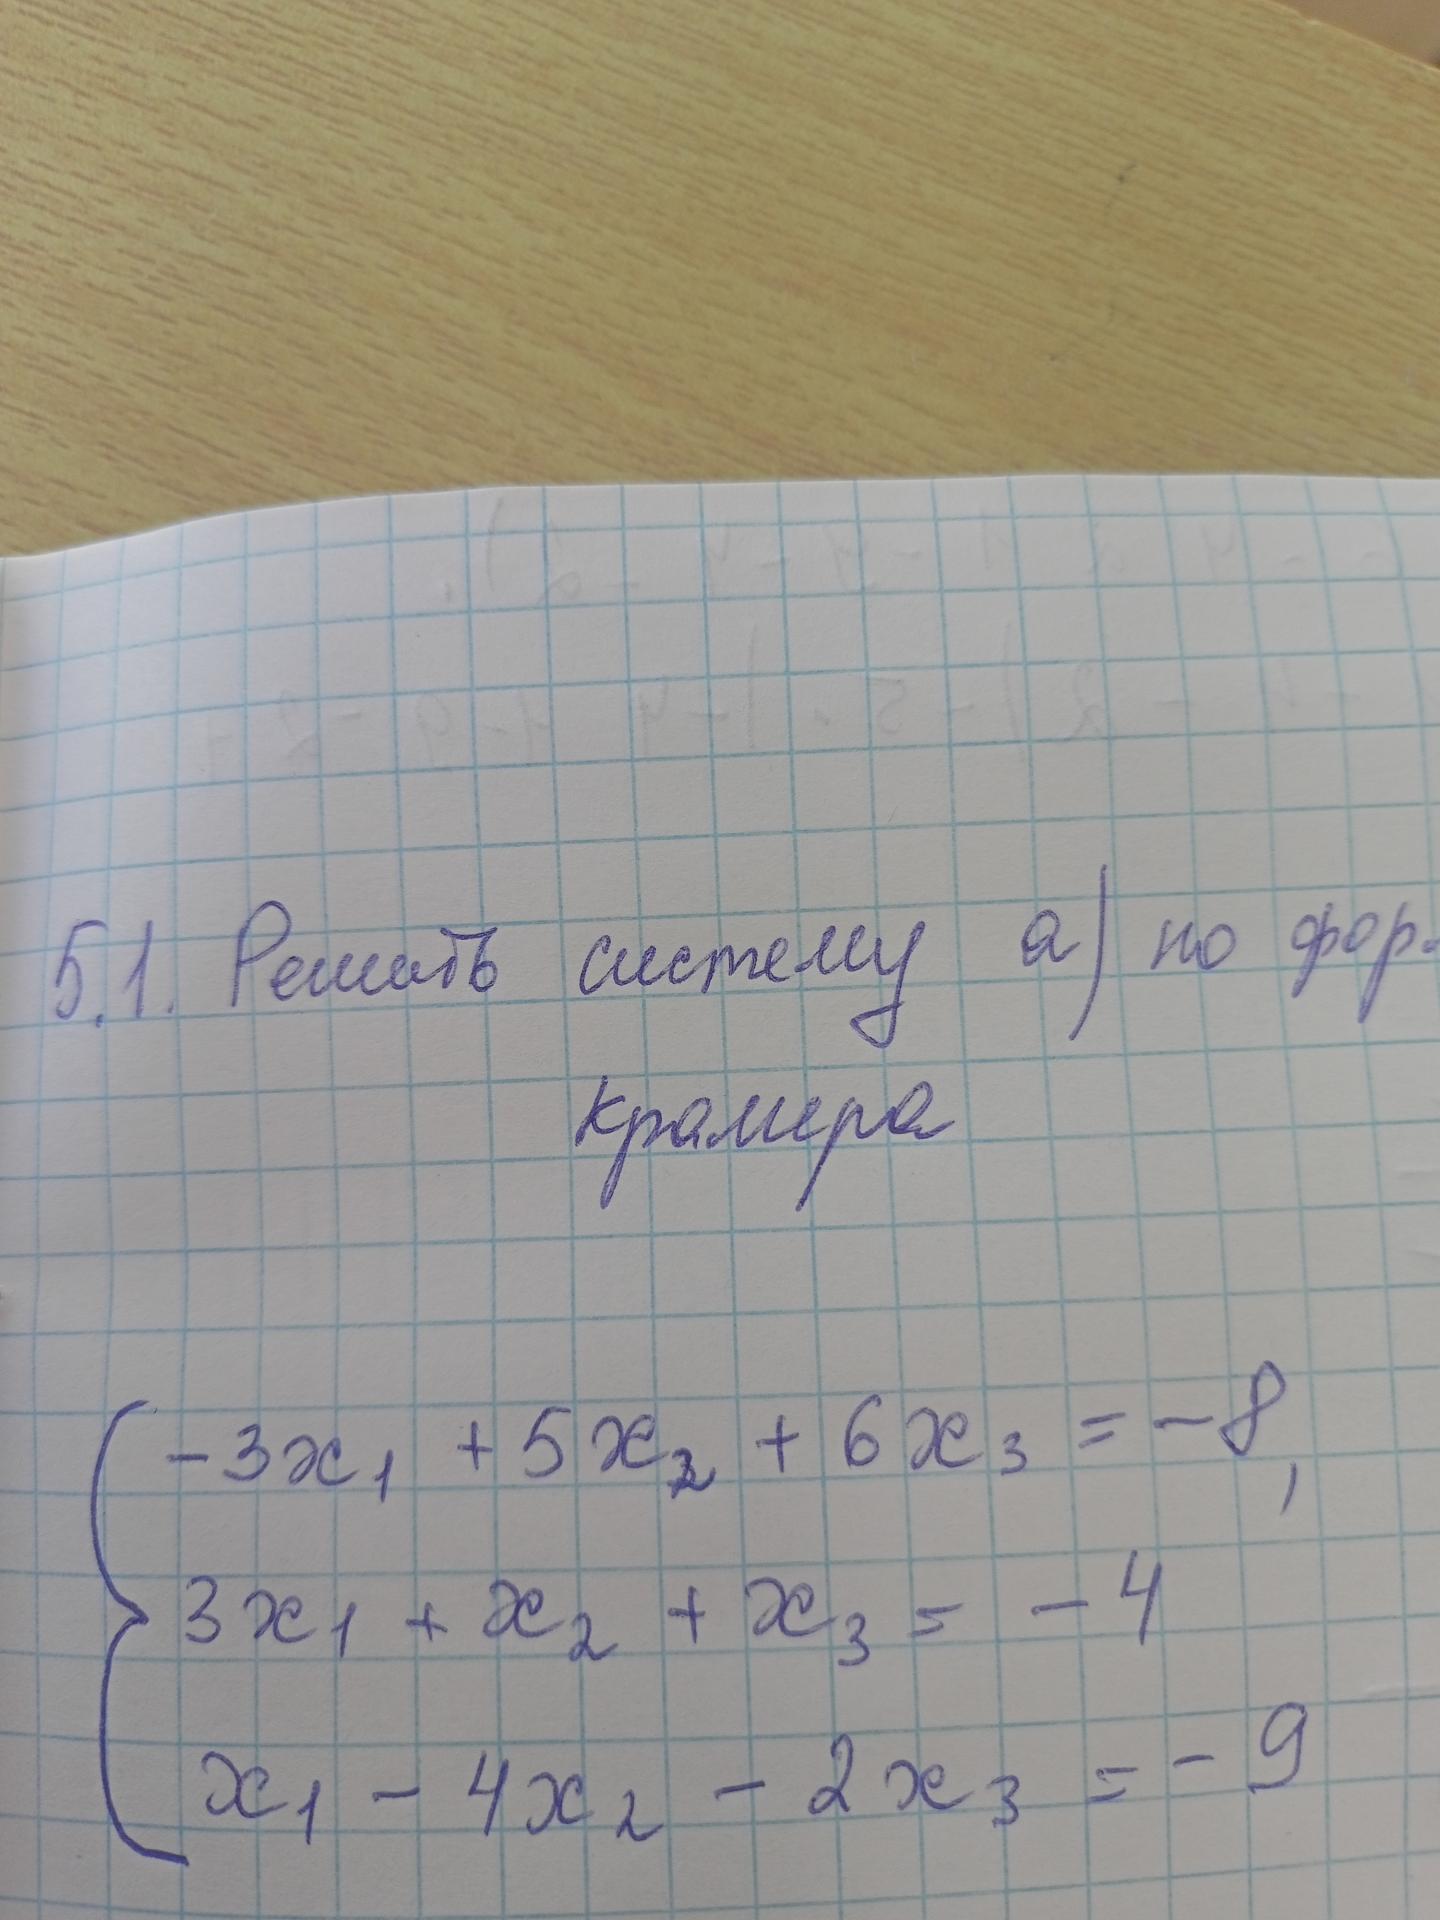 5.1. Решить систему а) по фор.
крамера
-3x₁ + 5x₂ + 6x₃ = -8,
3x₁ + x₂ + x₃ = -4
x₁ - 4x₂ - 2x₃ = -9